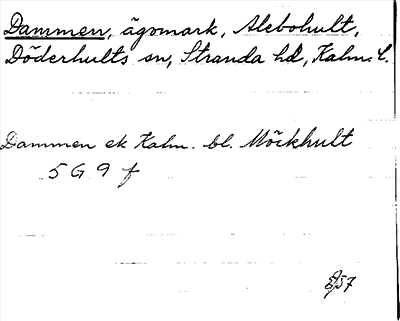 Dammen, ägomark, Alebohult,
Döderhults sn, Stranda hd, Kalm. l.
Dammen ek Kalm. bl. Möckhult
5 G 9 f